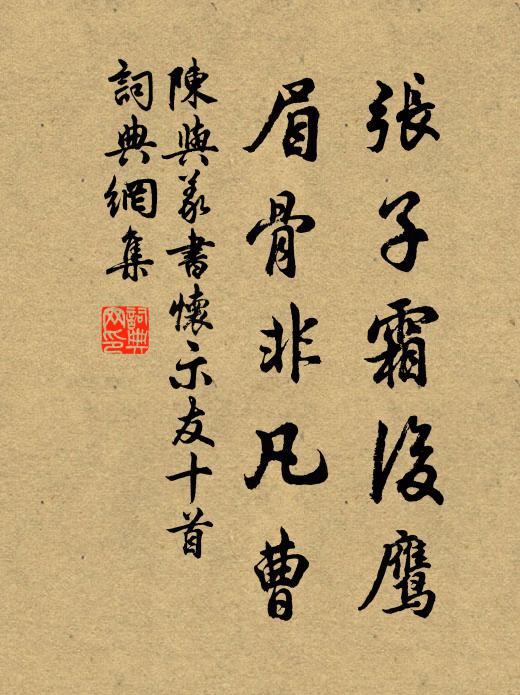 張子霜後鷹
眉骨非凡曹
陳與義書懷示友十首
詞典網集
詞典
网印